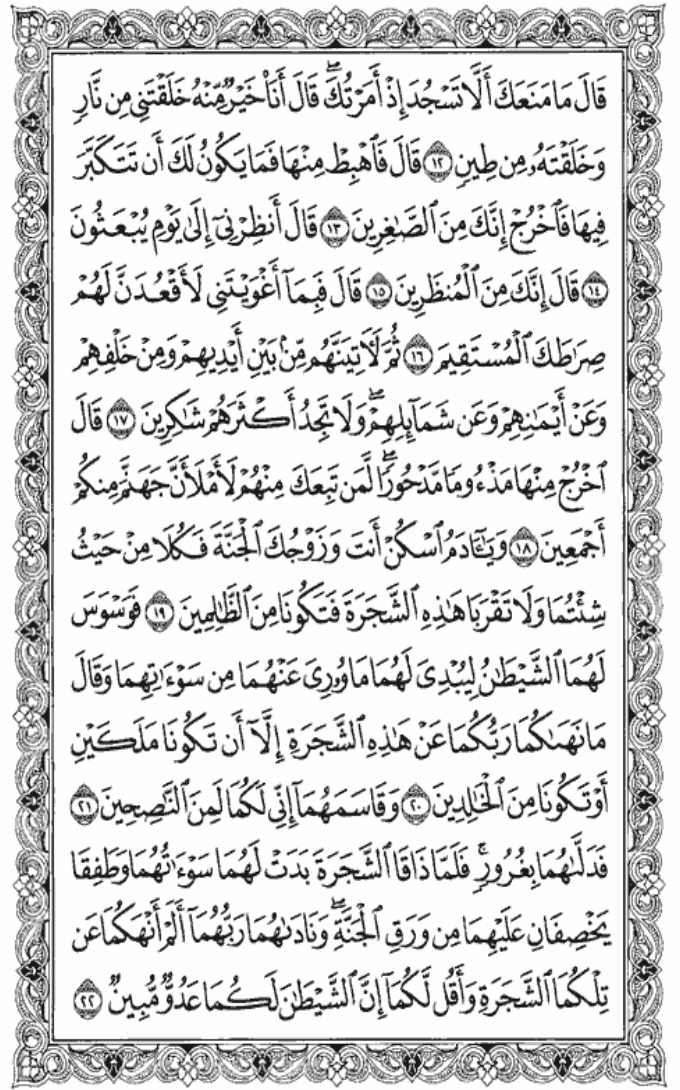 قَالَ مَا مَنَعَكَ أَلَّا تَسْجُدَ إِذْ أَمَرْتُكَ ۖ قَالَ أَنَا۠ خَيْرٌ مِّنْهُ خَلَقْتَنِي مِن نَّارٍ
وَخَلَقْتَهُۥ مِن طِينٍ ١٢ قَالَ فَٱهْبِطْ مِنْهَا فَمَا يَكُونُ لَكَ أَن تَتَكَبَّرَ
فِيهَا فَٱخْرُجْ إِنَّكَ مِنَ ٱلصَّٰغِرِينَ ١٣ قَالَ أَنظِرْنِىٓ إِلَىٰ يَوْمِ يُبْعَثُونَ
١٤ قَالَ إِنَّكَ مِنَ ٱلْمُنظَرِينَ ١٥ قَالَ فَبِمَآ أَغْوَيْتَنِى لَأَقْعُدَنَّ لَهُمْ
صِرَٰطَكَ ٱلْمُسْتَقِيمَ ١٦ ثُمَّ لَـَٔاتِيَنَّهُم مِّنۢ بَيْنِ أَيْدِيهِمْ وَمِنْ خَلْفِهِمْ
وَعَنْ أَيْمَٰنِهِمْ وَعَن شَمَآئِلِهِمْ ۖ وَلَا تَجِدُ أَكْثَرَهُمْ شَٰكِرِينَ ١٧ قَالَ
ٱخْرُجْ مِنْهَا مَذْءُومًا مَّدْحُورًا ۖ لَّمَن تَبِعَكَ مِنْهُمْ لَأَمْلَأَنَّ جَهَنَّمَ مِنكُمْ
أَجْمَعِينَ ١٨ وَيَٰٓـَٔادَمُ ٱسْكُنْ أَنتَ وَزَوْجُكَ ٱلْجَنَّةَ فَكُلَا مِنْ حَيْثُ
شِئْتُمَا وَلَا تَقْرَبَا هَٰذِهِ ٱلشَّجَرَةَ فَتَكُونَا مِنَ ٱلظَّٰلِمِينَ ١٩ فَوَسْوَسَ
لَهُمَا ٱلشَّيْطَٰنُ لِيُبْدِىَ لَهُمَا مَا وُۥرِىَ عَنْهُمَا مِن سَوْءَٰتِهِمَا وَقَالَ
مَا نَهَىٰكُمَا رَبُّكُمَا عَنْ هَٰذِهِ ٱلشَّجَرَةِ إِلَّآ أَن تَكُونَا مَلَكَيْنِ
أَوْ تَكُونَا مِنَ ٱلْخَٰلِدِينَ ٢٠ وَقَاسَمَهُمَآ إِنِّى لَكُمَا لَمِنَ ٱلنَّٰصِحِينَ ٢١
فَدَلَّىٰهُمَا بِغُرُورٍ ۚ فَلَمَّا ذَاقَا ٱلشَّجَرَةَ بَدَتْ لَهُمَا سَوْءَٰتُهُمَا وَطَفِقَا
يَخْصِفَانِ عَلَيْهِمَا مِن وَرَقِ ٱلْجَنَّةِ ۖ وَنَادَىٰهُمَا رَبُّهُمَآ أَلَمْ أَنْهَكُمَا عَن
تِلْكُمَا ٱلشَّجَرَةِ وَأَقُل لَّكُمَآ إِنَّ ٱلشَّيْطَٰنَ لَكُمَا عَدُوٌّ مُّبِينٌ ٢٢